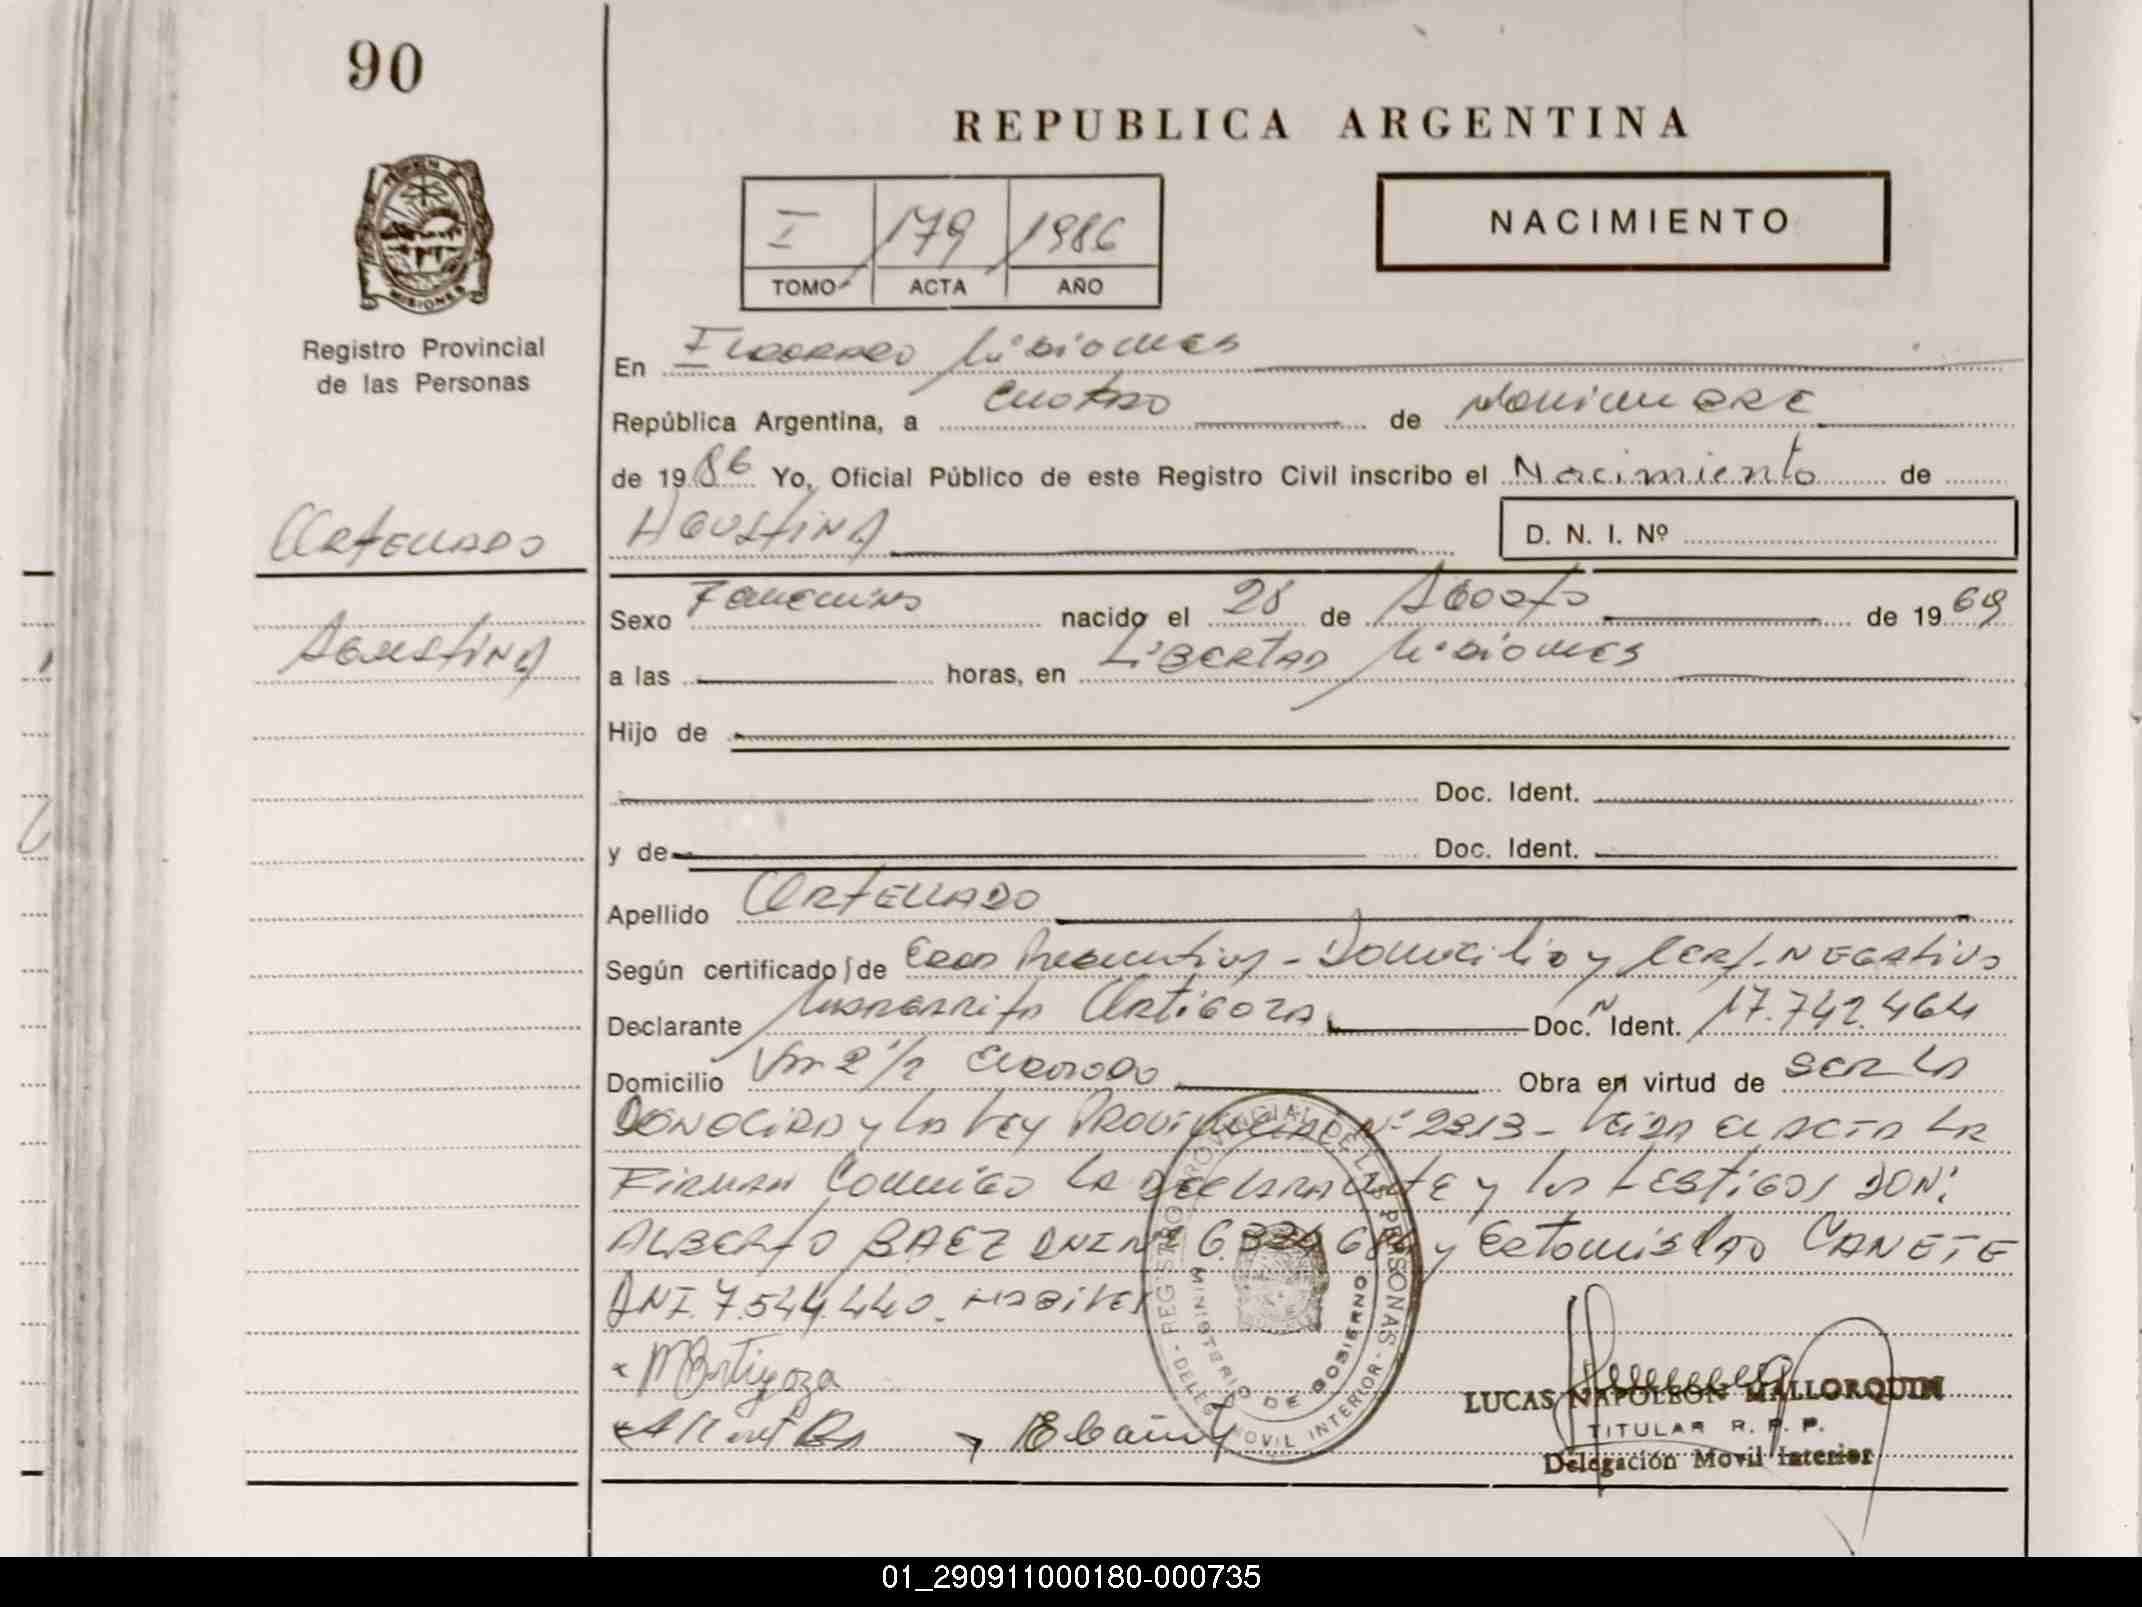 90
REPUBLICA ARGENTINA
I 179 1986
TOMO ACTA AÑO
NACIMIENTO
MISIONES
Registro Provincial
de las Personas
En Eldorado Misiones
República Argentina, a cuatro de Noviembre
de 1986 Yo, Oficial Público de este Registro Civil inscribo el Nacimiento de
Ortellado
AGUSTINA
D. N. I. Nº
Agustina
Sexo Femenino nacido el 28 de Agosto de 1969
a las horas, en Libertad Misiones
Hijo de
Doc. Ident.
y de Doc. Ident.
Apellido Ortellado
Según certificado de Edad Presuntiva - Domicilio y Cert. Negativo
Declarante Margarita Ortigoza Doc. Ident. N 17.742.464
Domicilio Km 2 1/2 Eldorado Obra en virtud de ser la
conocida y la Ley Provincial Nº 2313 - Leida el acta la
Firman Conmigo la Declarante y los testigos Don:
ALBERTO BAEZ DNI Nº y Estanislao CANETE
DNI. 7.544.440. Habiles
M Ortigoza
REGISTRO PROVINCIAL DE LAS PERSONAS
MINISTERIO DE GOBIERNO
- DELEG. MOVIL INTERIOR -
LUCAS NAPOLEON MALLORQUIN
TITULAR R. P. P.
Delegación Movil Interior
01_290911000180-000735